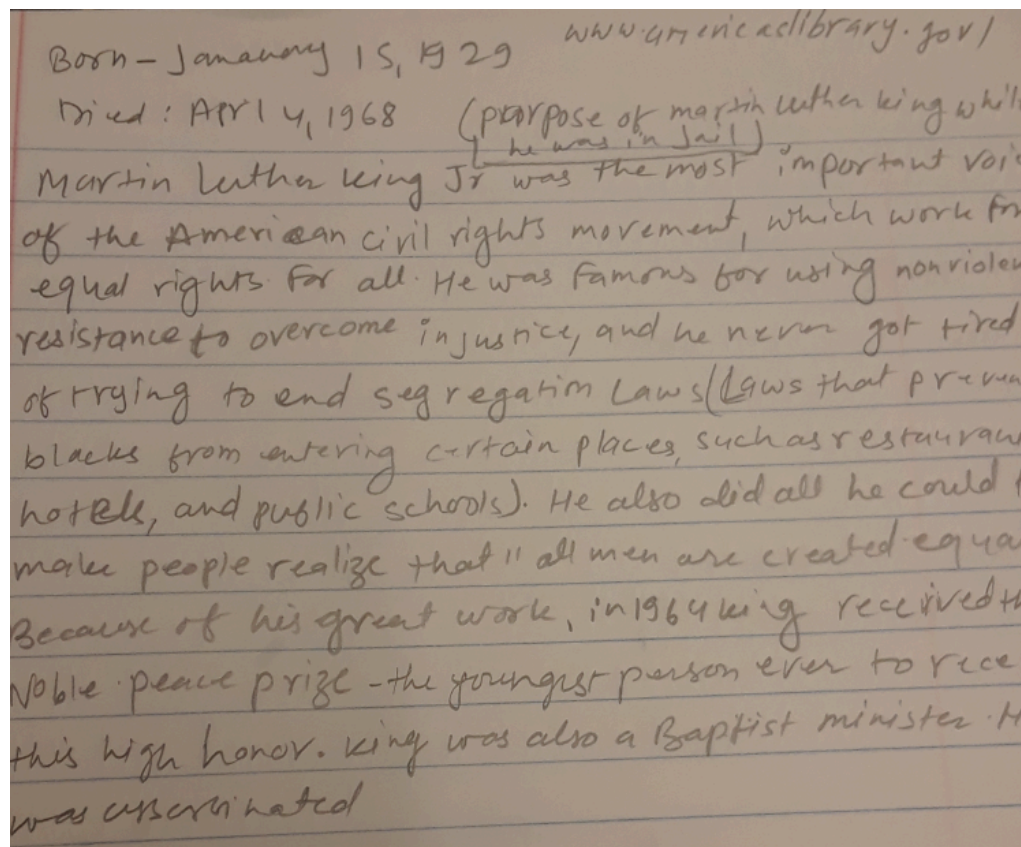 www.americaslibrary.gov/
Born - Janauary 15, 1929
Died : Aprl 4, 1968 (porpose of martin luther king whil
he was in Jail)
Martin luther king Jr was the most important voic
of the American civil rights movement, which work for
equal rights for all. He was famous for using nonviolen
resistance to overcome injustice, and he never got tired
of trying to end segregation Laws (Laws that preven
blacks from entering certain places, such as restauran
hotels, and public schools). He also did all he could t
make people realize that " all men are created equa
Because of his great work, in 1964 king received th
Noble peace prize - the youngest person ever to rece
this high honor. king was also a Baptist minister. H
was assasinated